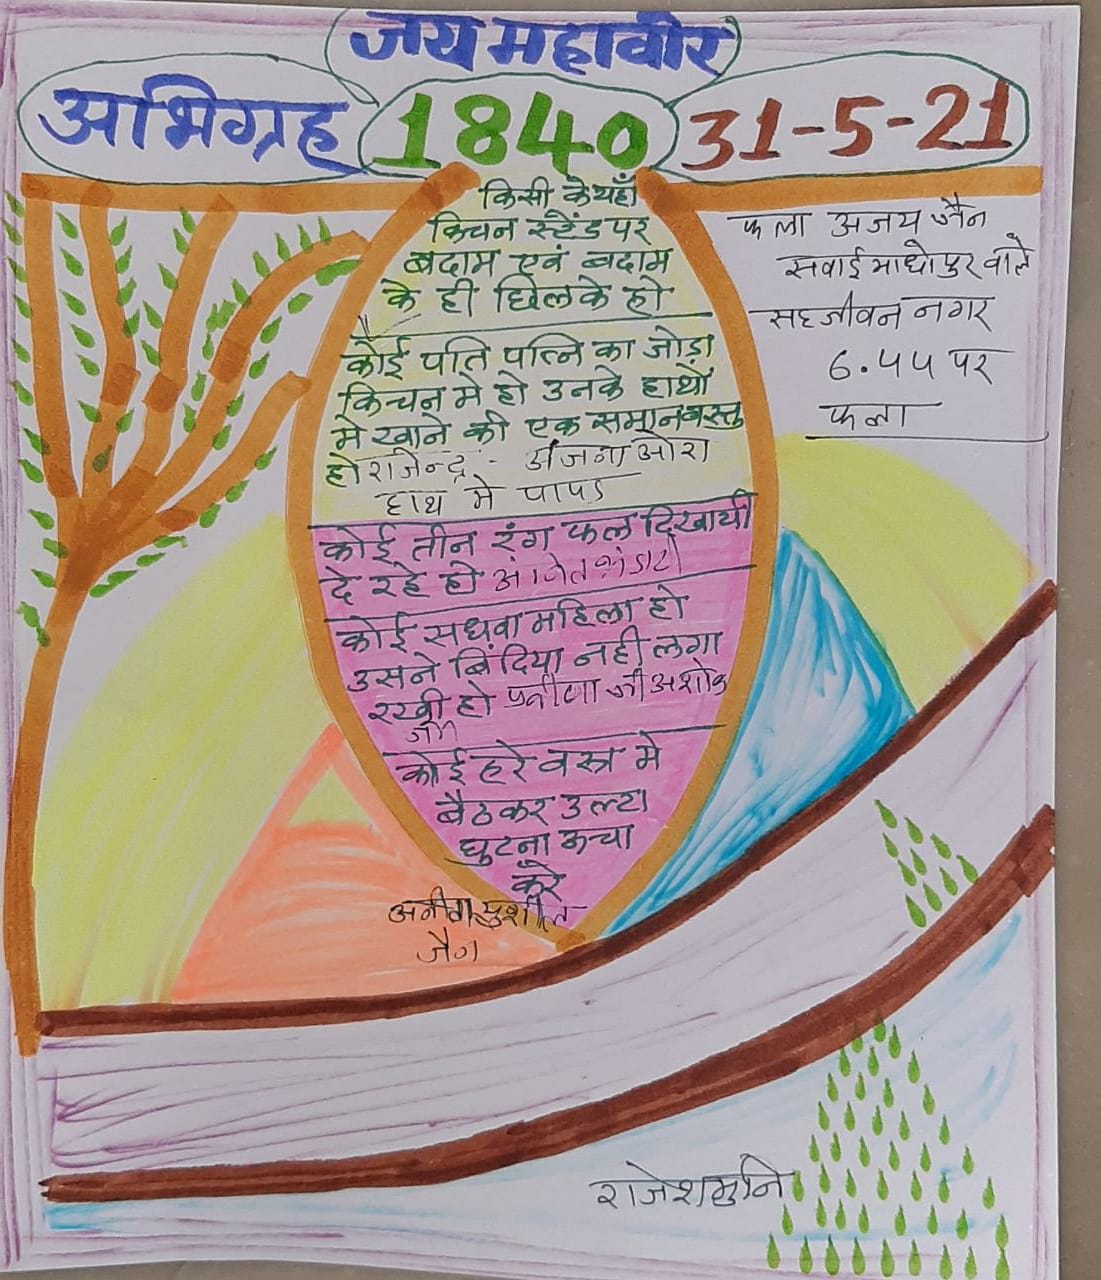 जय महावीर
अभिग्रह 1840 31-5-21
किसी के यहाँ
किचन स्टेंड पर
बदाम एवं बदाम
के ही छिलके हो
कोई पति पत्नि का जोड़ा
किचन मे हो उनके हाथों
मे खाने की एक समान वस्तु
हो राजेन्द्र - अंजना ओरा
हाथ मे पापड
कोई तीन रंग फल दिखायी
दे रहे हो
कोई सधवा महिला हो
उसने बिंदिया नही लगा
रखी हो प्रवीणा जी अशोक
जैन
कोई हरे वस्त्र मे
बैठकर उल्टा
घुटना ऊचा
करे
अनीता सुशील
जैन
फला अजय जैन
सवाई माधोपुर वाले
सहजीवन नगर
6.55 पर
फला
राजेशमुनि